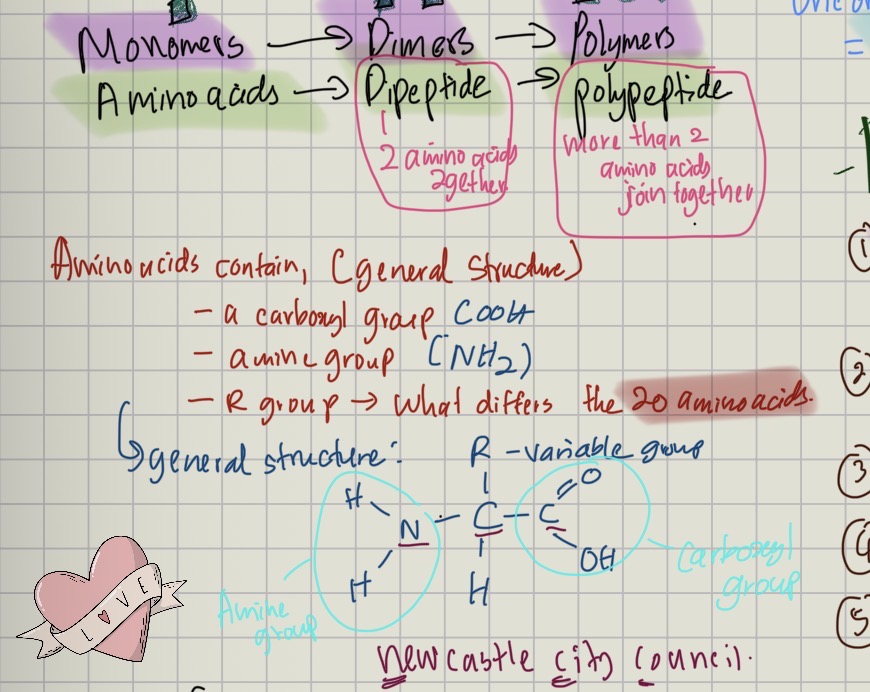 Monomers → Dimers → Polymers
Amino acids → Dipeptide → polypeptide
2 amino acids
2gether
more than 2
amino acids
join together
Amino acids contain, (general structure)
- a carboxyl group COOH
- amine group (NH2)
- R group → what differs the 20 amino acids.
general structure:
R - variable group
H
O
N - C - C
OH
H
H
Amine
group
Carboxyl
group
LOVE
Newcastle city council.
-
=
1
2
3
4
5